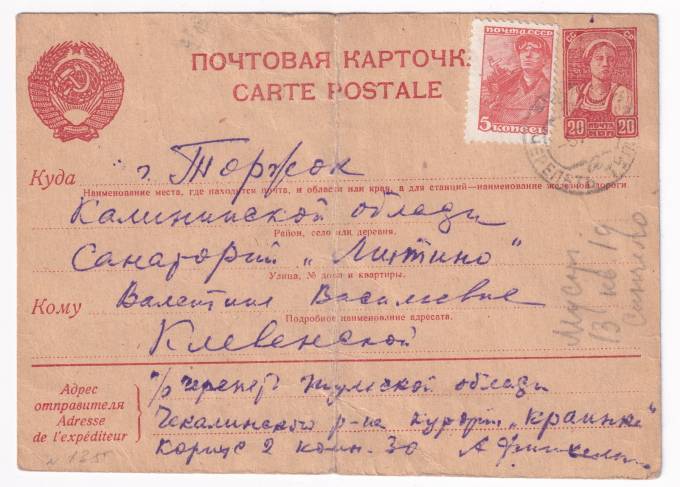 ПОЧТОВАЯ КАРТОЧК
CARTE POSTALE
ПОЧТА СССР
5 КОПЕЕК
20 ПОЧТА 20
КОП
Куда
г. Торжок
Наименование места, где находится почта, и области или края, а для станций—наименование железной дороги
Калининской области
Район, село или деревня.
Санаторий „Митино"
Улица, № дома и квартиры.
Кому
Валентине Васильевне
Подробное наименование адресата.
Клевенской
Адрес
отправителя
Adresse
de l'expéditeur
п/о Черепеть Тульской области
Чекалинского р-на курорт „Краинка"
Корпус 2 комн. 30
13 19